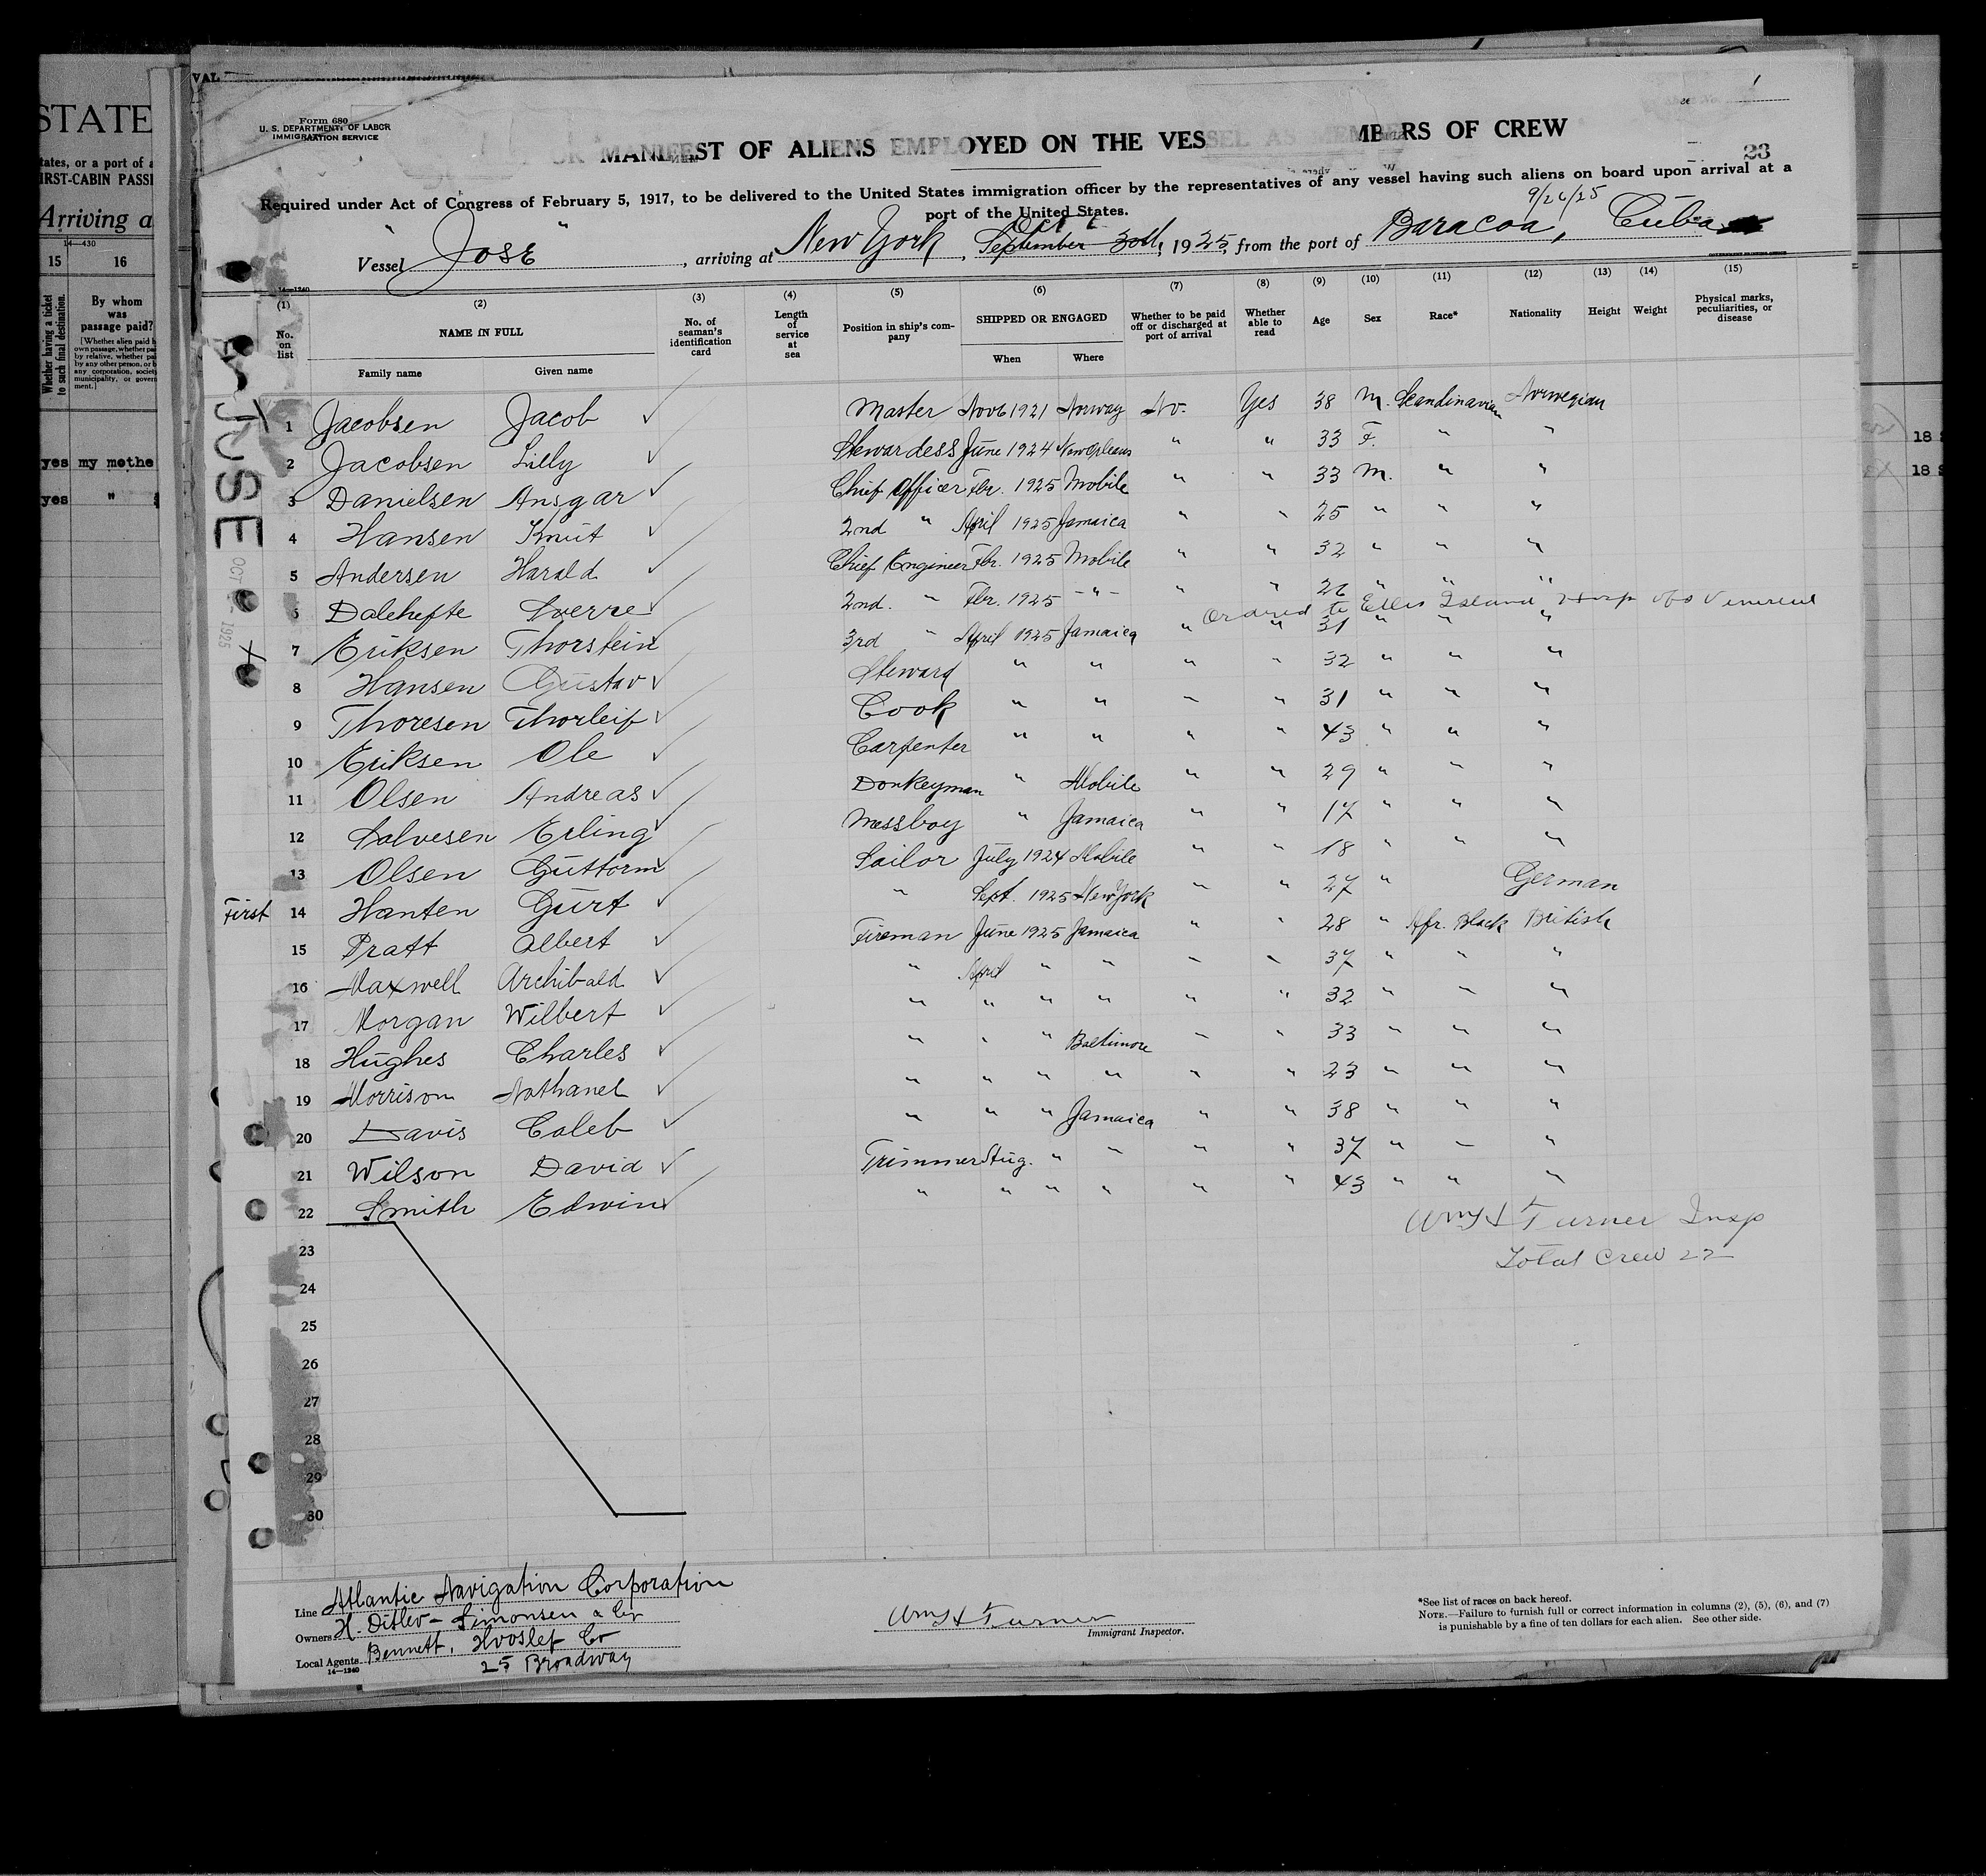 Form 680
U. S. DEPARTMENT OF LABOR
IMMIGRATION SERVICE
OR MANIFEST OF ALIENS EMPLOYED ON THE VESSEL AS MEMBERS OF CREW
23
Required under Act of Congress of February 5, 1917, to be delivered to the United States immigration officer by the representatives of any vessel having such aliens on board upon arrival at a
port of the United States.
9/26/25
Vessel "Jose", arriving at New York, September 30th, 1925, from the port of Baracoa, Cuba
14—1240
(1) (2) (3) (4) (5) (6) (7) (8) (9) (10) (11) (12) (13) (14) (15)
No. on list NAME IN FULL Family name Given name No. of seaman's identification card Length of service at sea Position in ship's company SHIPPED OR ENGAGED When Where Whether to be paid off or discharged at port of arrival Whether able to read Age Sex Race* Nationality Height Weight Physical marks, peculiarities, or disease
1 Jacobsen Jacob ✓ Master Nov 6 1921 Norway No. Yes 38 M. Scandinavian Norwegian
2 Jacobsen Lilly ✓ Stewardess June 1924 New Orleans " " 33 F. " "
3 Danielsen Ansgar ✓ Chief Officer Fbr. 1925 Mobile " " 33 M. " "
4 Hansen Knut ✓ 2nd " April 1925 Jamaica " " 25 " " "
5 Andersen Harald ✓ Chief Engineer Fbr. 1925 Mobile " " 32 " " "
6 Dalehefte Sverre ✓ 2nd. " Fbr. 1925 -"- " " 26 " " "
Ordered to Ellis Island Hosp
7 Eriksen Thorstein ✓ 3rd " April 1925 Jamaica " " 31 " " "
8 Hansen Gustav ✓ Steward " " " " 32 " " "
9 Thoresen Thorleif ✓ Cook " " " " 31 " " "
10 Eriksen Ole ✓ Carpenter " " " " 43 " " "
11 Olsen Andreas ✓ Donkeyman " Mobile " " 29 " " "
12 Salvesen Erling ✓ Messboy " Jamaica " " 17 " " "
13 Olsen Guttorm ✓ Sailor July 1924 Mobile " " 18 " " "
First 14 Hanten Gurt ✓ " Sept. 1925 New York " " 27 " German
15 Pratt Albert ✓ Fireman June 1925 Jamaica " " 28 " Afr. Black British
16 Maxwell Archibald ✓ " April " " " " 37 " " "
17 Morgan Wilbert ✓ " " " " " " 32 " " "
18 Hughes Charles ✓ " " " Baltimore " " 33 " " "
19 Morrison Nathanel ✓ " " " " " " 23 " " "
20 Davis Caleb ✓ " " " Jamaica " " 38 " " "
21 Wilson David ✓ Trimmer Aug. " " " " 37 " " "
22 Smith Edwin ✓ " " " " " " 43 " " "
23
24
25
26
27
28
29
30
Wm H Turner Insp
Total Crew 22
Line Atlantic Navigation Corporation
Owners H. Ditlev-Simonsen & Co
Local Agents Bennett, Hvoslef Co
25 Broadway
14—1240
Wm H Turner
Immigrant Inspector.
*See list of races on back hereof.
NOTE.—Failure to furnish full or correct information in columns (2), (5), (6), and (7)
is punishable by a fine of ten dollars for each alien. See other side.
JOSE
OCT 1925
STATE
tates, or a port of a
IRST-CABIN PASS
Arriving a
14—430
15 16
Whether having a ticket to such final destination.
By whom
was
passage paid?
yes my mothe
yes "
18
18